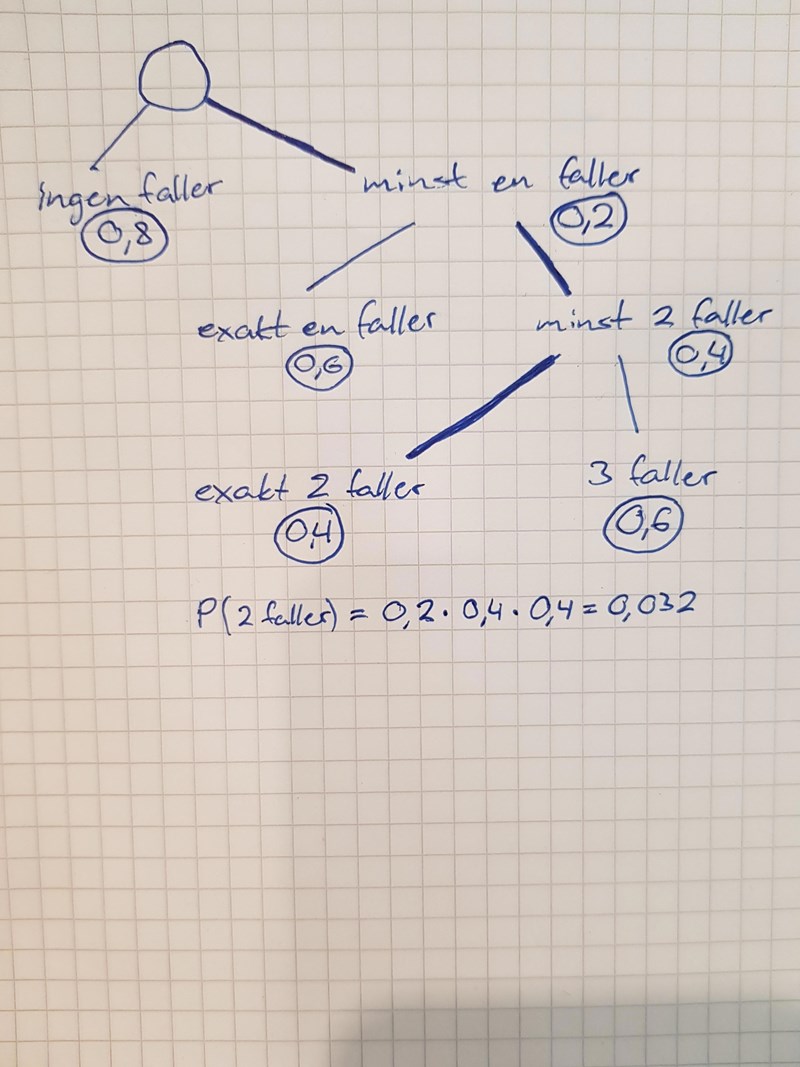 ingen faller
0,8
minst en faller
0,2
exakt en faller
0,6
minst 2 faller
0,4
exakt 2 faller
0,4
3 faller
0,6
P(2 faller) = 0,2 · 0,4 · 0,4 = 0,032